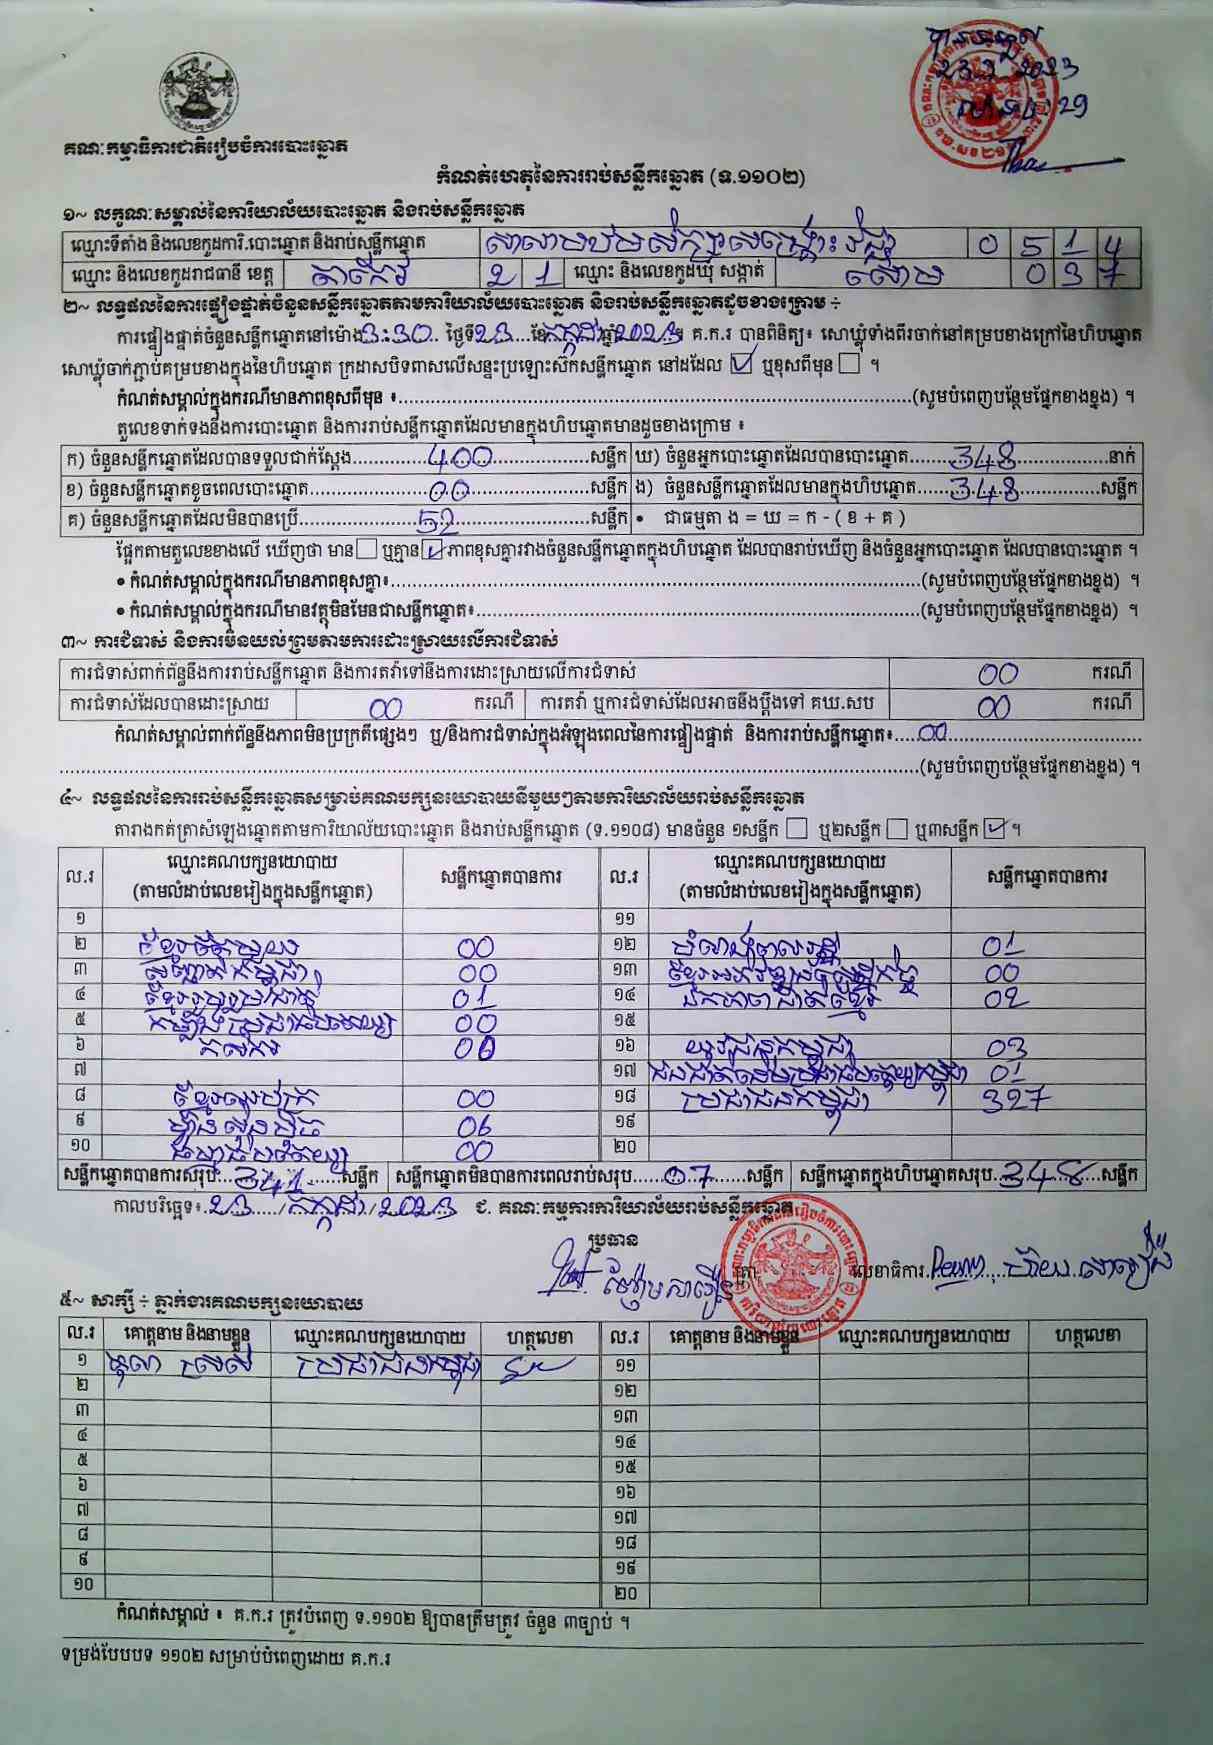 23 7 2023
29
គណៈកម្មាធិការជាតិរៀបចំការបោះឆ្នោត
កំណត់ហេតុនៃការរាប់សន្លឹកឆ្នោត (ទ.១១០២)
១~ លក្ខណៈសម្គាល់នៃការិយាល័យបោះឆ្នោត និងរាប់សន្លឹកឆ្នោត
ឈ្មោះទីតាំង និងលេខកូដការិ.បោះឆ្នោត និងរាប់សន្លឹកឆ្នោត 0 5 1 4
ឈ្មោះ និងលេខកូដរាជធានី ខេត្ត តាកែវ 2 1 ឈ្មោះ និងលេខកូដឃុំ សង្កាត់ 0 3 7
២~ លទ្ធផលនៃការផ្ទៀងផ្ទាត់ចំនួនសន្លឹកឆ្នោតតាមការិយាល័យបោះឆ្នោត និងរាប់សន្លឹកឆ្នោតដូចខាងក្រោម ÷
ការផ្ទៀងផ្ទាត់ចំនួនសន្លឹកឆ្នោតនៅម៉ោង 3:30 ថ្ងៃទី 23 ខែ កក្កដា ឆ្នាំ 2023 គ.ក.រ បានពិនិត្យ៖ សោឃ្លុំទាំងពីរចាក់នៅគម្របខាងក្រៅនៃហិបឆ្នោត
សោឃ្លុំចាក់ភ្ជាប់គម្របខាងក្នុងនៃហិបឆ្នោត ក្រដាសបិទពាសលើសន្ទះប្រឡោះស៊កសន្លឹកឆ្នោត នៅដដែល ☑ ឬខុសពីមុន ☐ ។
កំណត់សម្គាល់ក្នុងករណីមានភាពខុសពីមុន ៖..........(សូមបំពេញបន្ថែមផ្នែកខាងខ្នង) ។
តួលេខទាក់ទងនឹងការបោះឆ្នោត និងការរាប់សន្លឹកឆ្នោតដែលមានក្នុងហិបឆ្នោតមានដូចខាងក្រោម ៖
ក) ចំនួនសន្លឹកឆ្នោតដែលបានទទួលជាក់ស្តែង.....400.....សន្លឹក ឃ) ចំនួនអ្នកបោះឆ្នោតដែលបានបោះឆ្នោត.....348.....នាក់
ខ) ចំនួនសន្លឹកឆ្នោតខូចពេលបោះឆ្នោត.....00.....សន្លឹក ង) ចំនួនសន្លឹកឆ្នោតដែលមានក្នុងហិបឆ្នោត.....348.....សន្លឹក
គ) ចំនួនសន្លឹកឆ្នោតដែលមិនបានប្រើ.....52.....សន្លឹក • ជាធម្មតា ង = ឃ = ក - ( ខ + គ )
ផ្អែកតាមតួលេខខាងលើ ឃើញថា មាន ☐ ឬគ្មាន ☑ ភាពខុសគ្នារវាងចំនួនសន្លឹកឆ្នោតក្នុងហិបឆ្នោត ដែលបានរាប់ឃើញ និងចំនួនអ្នកបោះឆ្នោត ដែលបានបោះឆ្នោត ។
• កំណត់សម្គាល់ក្នុងករណីមានភាពខុសគ្នា៖..........(សូមបំពេញបន្ថែមផ្នែកខាងខ្នង) ។
• កំណត់សម្គាល់ក្នុងករណីមានវត្ថុមិនមែនជាសន្លឹកឆ្នោត៖..........(សូមបំពេញបន្ថែមផ្នែកខាងខ្នង) ។
៣~ ការជំទាស់ និងការមិនយល់ព្រមតាមការដោះស្រាយលើការជំទាស់
ការជំទាស់ពាក់ព័ន្ធនឹងការរាប់សន្លឹកឆ្នោត និងការតវ៉ាទៅនឹងការដោះស្រាយលើការជំទាស់ 00 ករណី
ការជំទាស់ដែលបានដោះស្រាយ 00 ករណី ការតវ៉ា ឬការជំទាស់ដែលអាចនឹងប្តឹងទៅ គឃ.សប 00 ករណី
កំណត់សម្គាល់ពាក់ព័ន្ធនឹងភាពមិនប្រក្រតីផ្សេងៗ ឬ/និងការជំទាស់ក្នុងអំឡុងពេលនៃការផ្ទៀងផ្ទាត់ និងការរាប់សន្លឹកឆ្នោត៖.....00.....
..........(សូមបំពេញបន្ថែមផ្នែកខាងខ្នង) ។
៤~ លទ្ធផលនៃការរាប់សន្លឹកឆ្នោតសម្រាប់គណបក្សនយោបាយនីមួយៗតាមការិយាល័យរាប់សន្លឹកឆ្នោត
តារាងកត់ត្រាសំឡេងឆ្នោតតាមការិយាល័យបោះឆ្នោត និងរាប់សន្លឹកឆ្នោត (ទ.១១០៨) មានចំនួន ១សន្លឹក ☐ ឬ២សន្លឹក ☐ ឬ៣សន្លឹក ☑ ។
ល.រ ឈ្មោះគណបក្សនយោបាយ សន្លឹកឆ្នោតបានការ ល.រ ឈ្មោះគណបក្សនយោបាយ សន្លឹកឆ្នោតបានការ
(តាមលំដាប់លេខរៀងក្នុងសន្លឹកឆ្នោត) (តាមលំដាប់លេខរៀងក្នុងសន្លឹកឆ្នោត)
១ ១១
២ ខ្មែរតែមួយ 00 ១២ 01
៣ 00 ១៣ 00
៤ ខ្មែររួបរួមជាតិ 01 ១៤ 02
៥ កម្លាំងប្រជាធិបតេយ្យ 00 ១៥
៦ កសិករ 00 ១៦ យុវជនកម្ពុជា 03
៧ ១៧ ជនជាតិដើមប្រជាធិបតេយ្យកម្ពុជា 01
៨ ខ្មែរអភិរក្ស 00 ១៨ ប្រជាជនកម្ពុជា 327
៩ ហ្វ៊ុនស៊ិនប៉ិច 06 ១៩
១០ ធម្មាធិបតេយ្យ 00 ២០
សន្លឹកឆ្នោតបានការសរុប...341...សន្លឹក សន្លឹកឆ្នោតមិនបានការពេលរាប់សរុប...07...សន្លឹក សន្លឹកឆ្នោតក្នុងហិបឆ្នោតសរុប...348...សន្លឹក
កាលបរិច្ឆេទ៖ 23 / កក្កដា / 2023 ជ. គណៈកម្មការការិយាល័យរាប់សន្លឹកឆ្នោត
ប្រធាន
ត្រា លេខាធិការ
៥~ សាក្សី ÷ ភ្នាក់ងារគណបក្សនយោបាយ
ល.រ គោត្តនាម និងនាមខ្លួន ឈ្មោះគណបក្សនយោបាយ ហត្ថលេខា ល.រ គោត្តនាម និងនាមខ្លួន ឈ្មោះគណបក្សនយោបាយ ហត្ថលេខា
១ ប្រជាជនកម្ពុជា ១១
២ ១២
៣ ១៣
៤ ១៤
៥ ១៥
៦ ១៦
៧ ១៧
៨ ១៨
៩ ១៩
១០ ២០
កំណត់សម្គាល់ ៖ គ.ក.រ ត្រូវបំពេញ ទ.១១០២ ឱ្យបានត្រឹមត្រូវ ចំនួន ៣ច្បាប់ ។
ទម្រង់បែបបទ ១១០២ សម្រាប់បំពេញដោយ គ.ក.រ